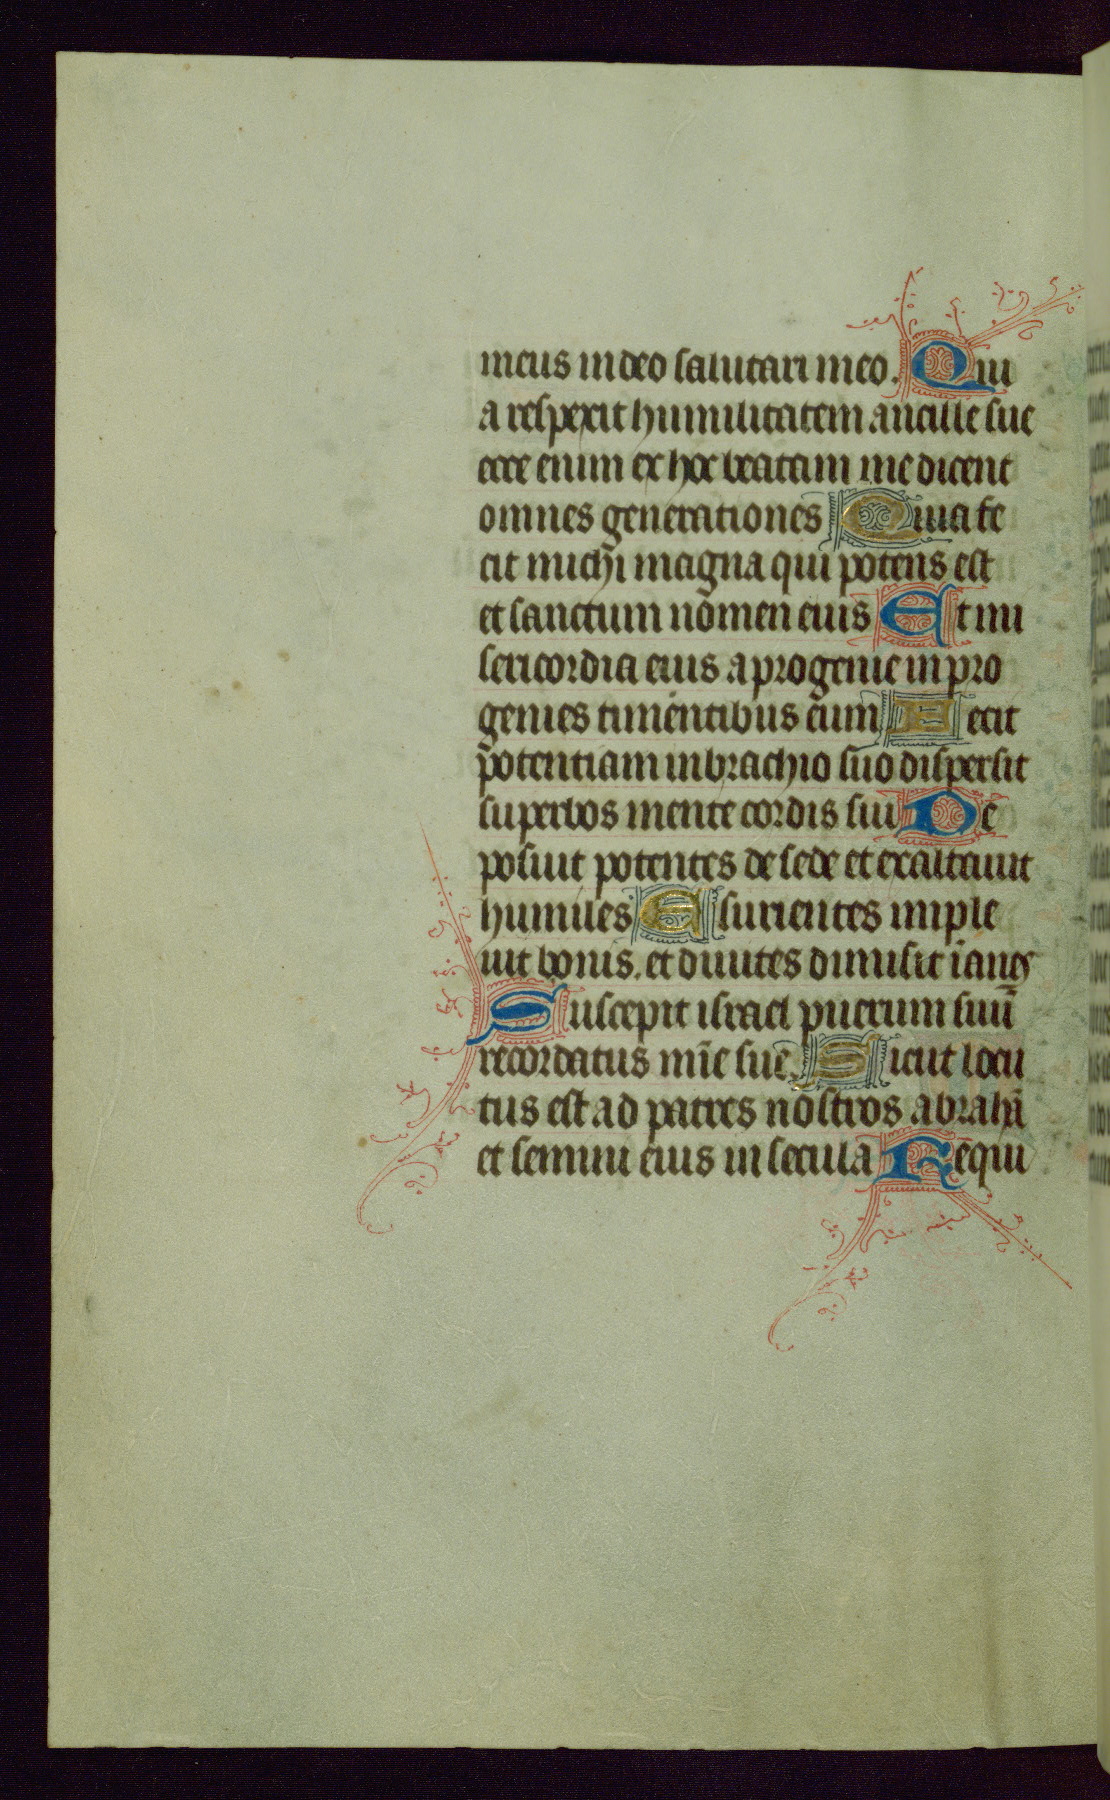 meus in deo salutari meo. Qui
a respexit humilitatem ancille sue
ecce enim ex hoc beatam me dicent
omnes generationes Quia fe
cit michi magna qui potens est
et sanctum nomen eius Et mi
sericordia eius a progenie in pro
genies timentibus eum Fecit
potentiam in brachio suo dispersit
superbos mente cordis sui De
posuit potentes de sede et exaltauit
humiles Esurientes imple
uit bonis. et diuites dimisit ianes
Suscepit israel puerum suū
recordatus mīe sue. Sicut locu
tus est ad patres nostros abrahā
et semini eius in secula Requi